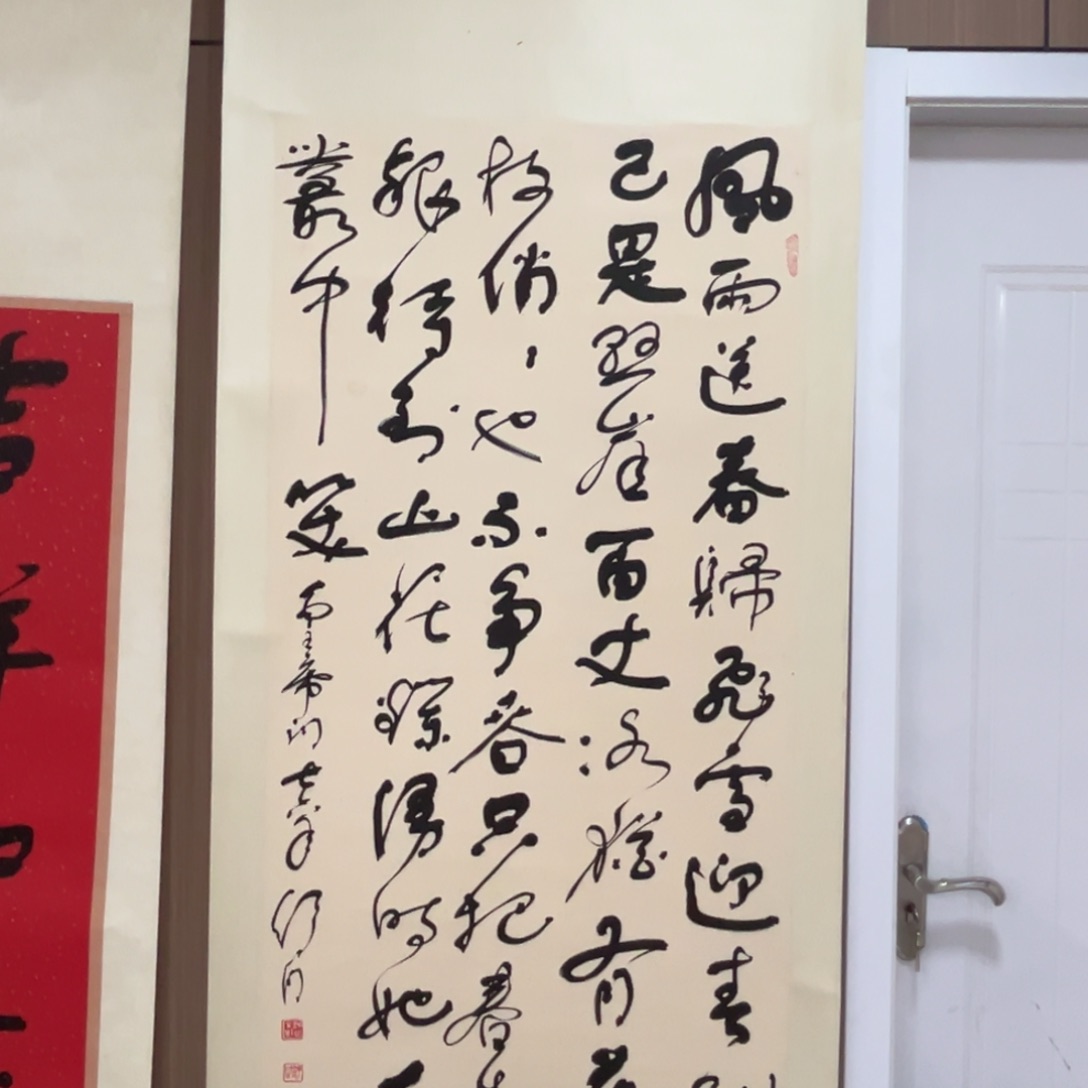 風雨送春歸飛雪迎春
已是懸崖百丈冰猶有花
枝俏、、也不爭春只把春
報待到山花爛漫時她在
叢中笑
毛主席词